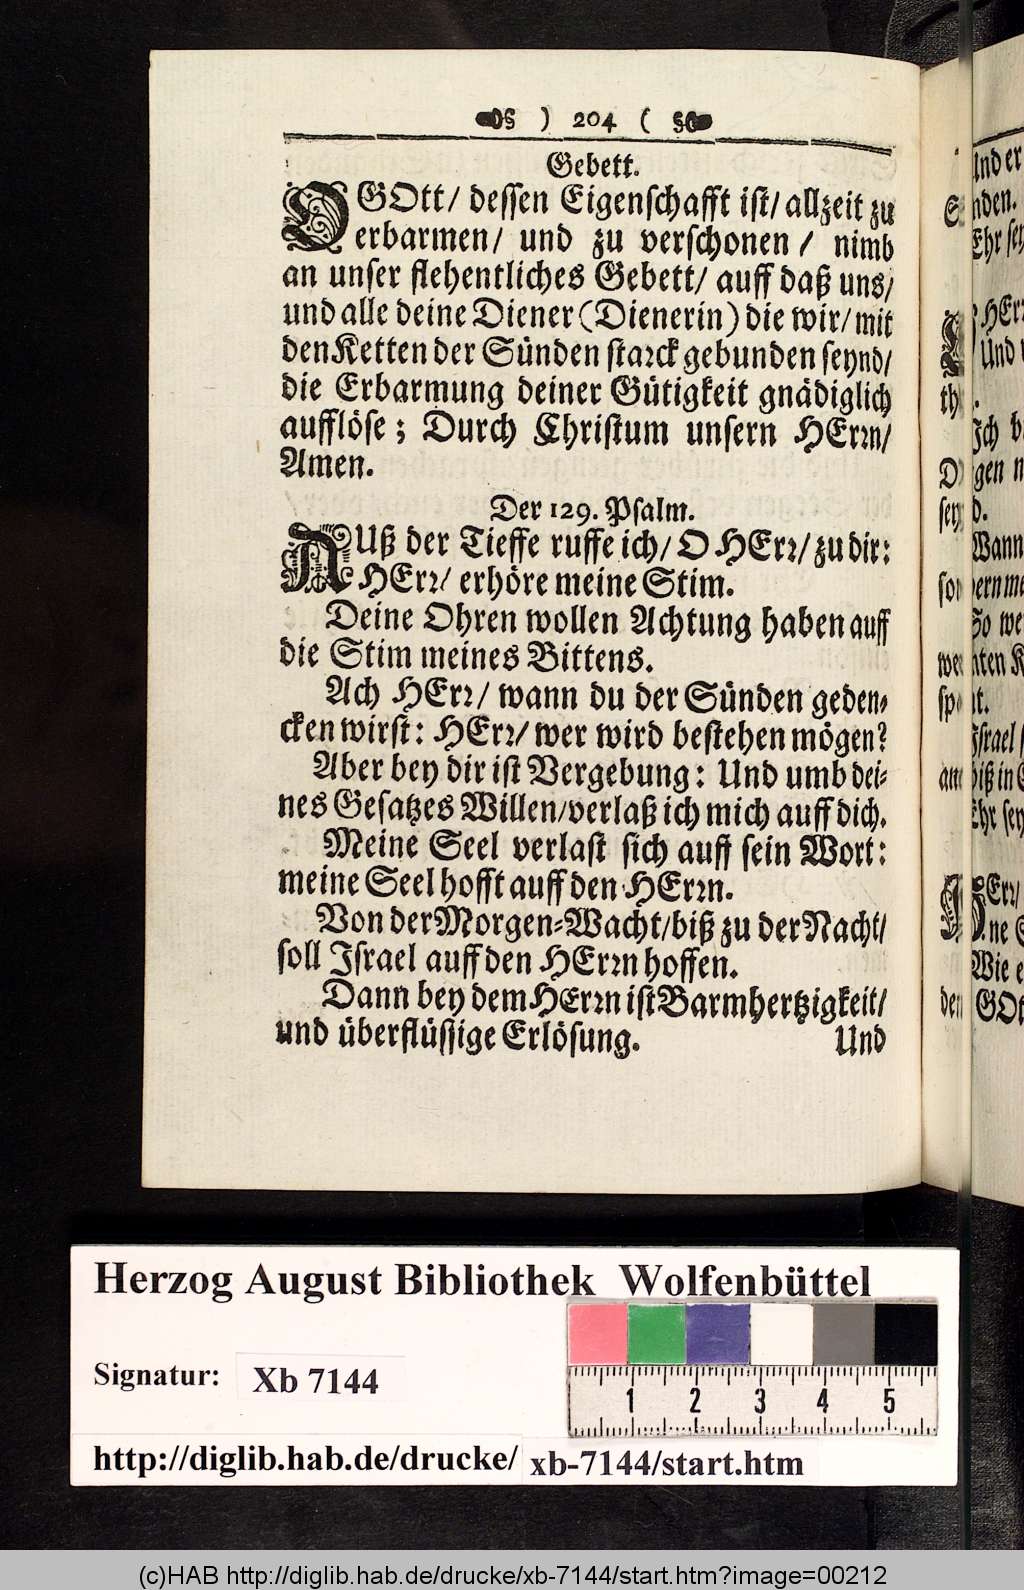 ) 204 (
Gebett.
O GOtt/ dessen Eigenschafft ist/ allzeit zu
erbarmen/ und zu verschonen / nimb
an unser flehentliches Gebett/ auff daß uns/
und alle deine Diener (Dienerin) die wir/ mit
den Ketten der Sünden starck gebunden seynd/
die Erbarmung deiner Gütigkeit gnädiglich
aufflöse; Durch Christum unsern HErrn/
Amen.
Der 129. Psalm.
AUß der Tieffe ruffe ich/ O HErr/ zu dir:
HErr/ erhöre meine Stim.
Deine Ohren wollen Achtung haben auff
die Stim meines Bittens.
Ach HErr/ wann du der Sünden geden-
cken wirst: HErr/ wer wird bestehen mögen?
Aber bey dir ist Vergebung: Und umb dei-
nes Gesatzes Willen/ verlaß ich mich auff dich.
Meine Seel verlast sich auff sein Wort:
meine Seel hofft auff den HErrn.
Von der Morgen-Wacht/ biß zu der Nacht/
soll Israel auff den HErrn hoffen.
Dann bey dem HErrn ist Barmhertzigkeit/
und überflüssige Erlösung. Und
Herzog August Bibliothek Wolfenbüttel
Signatur: Xb 7144
1 2 3 4 5
http://diglib.hab.de/drucke/ xb-7144/start.htm
(c)HAB http://diglib.hab.de/drucke/xb-7144/start.htm?image=00212